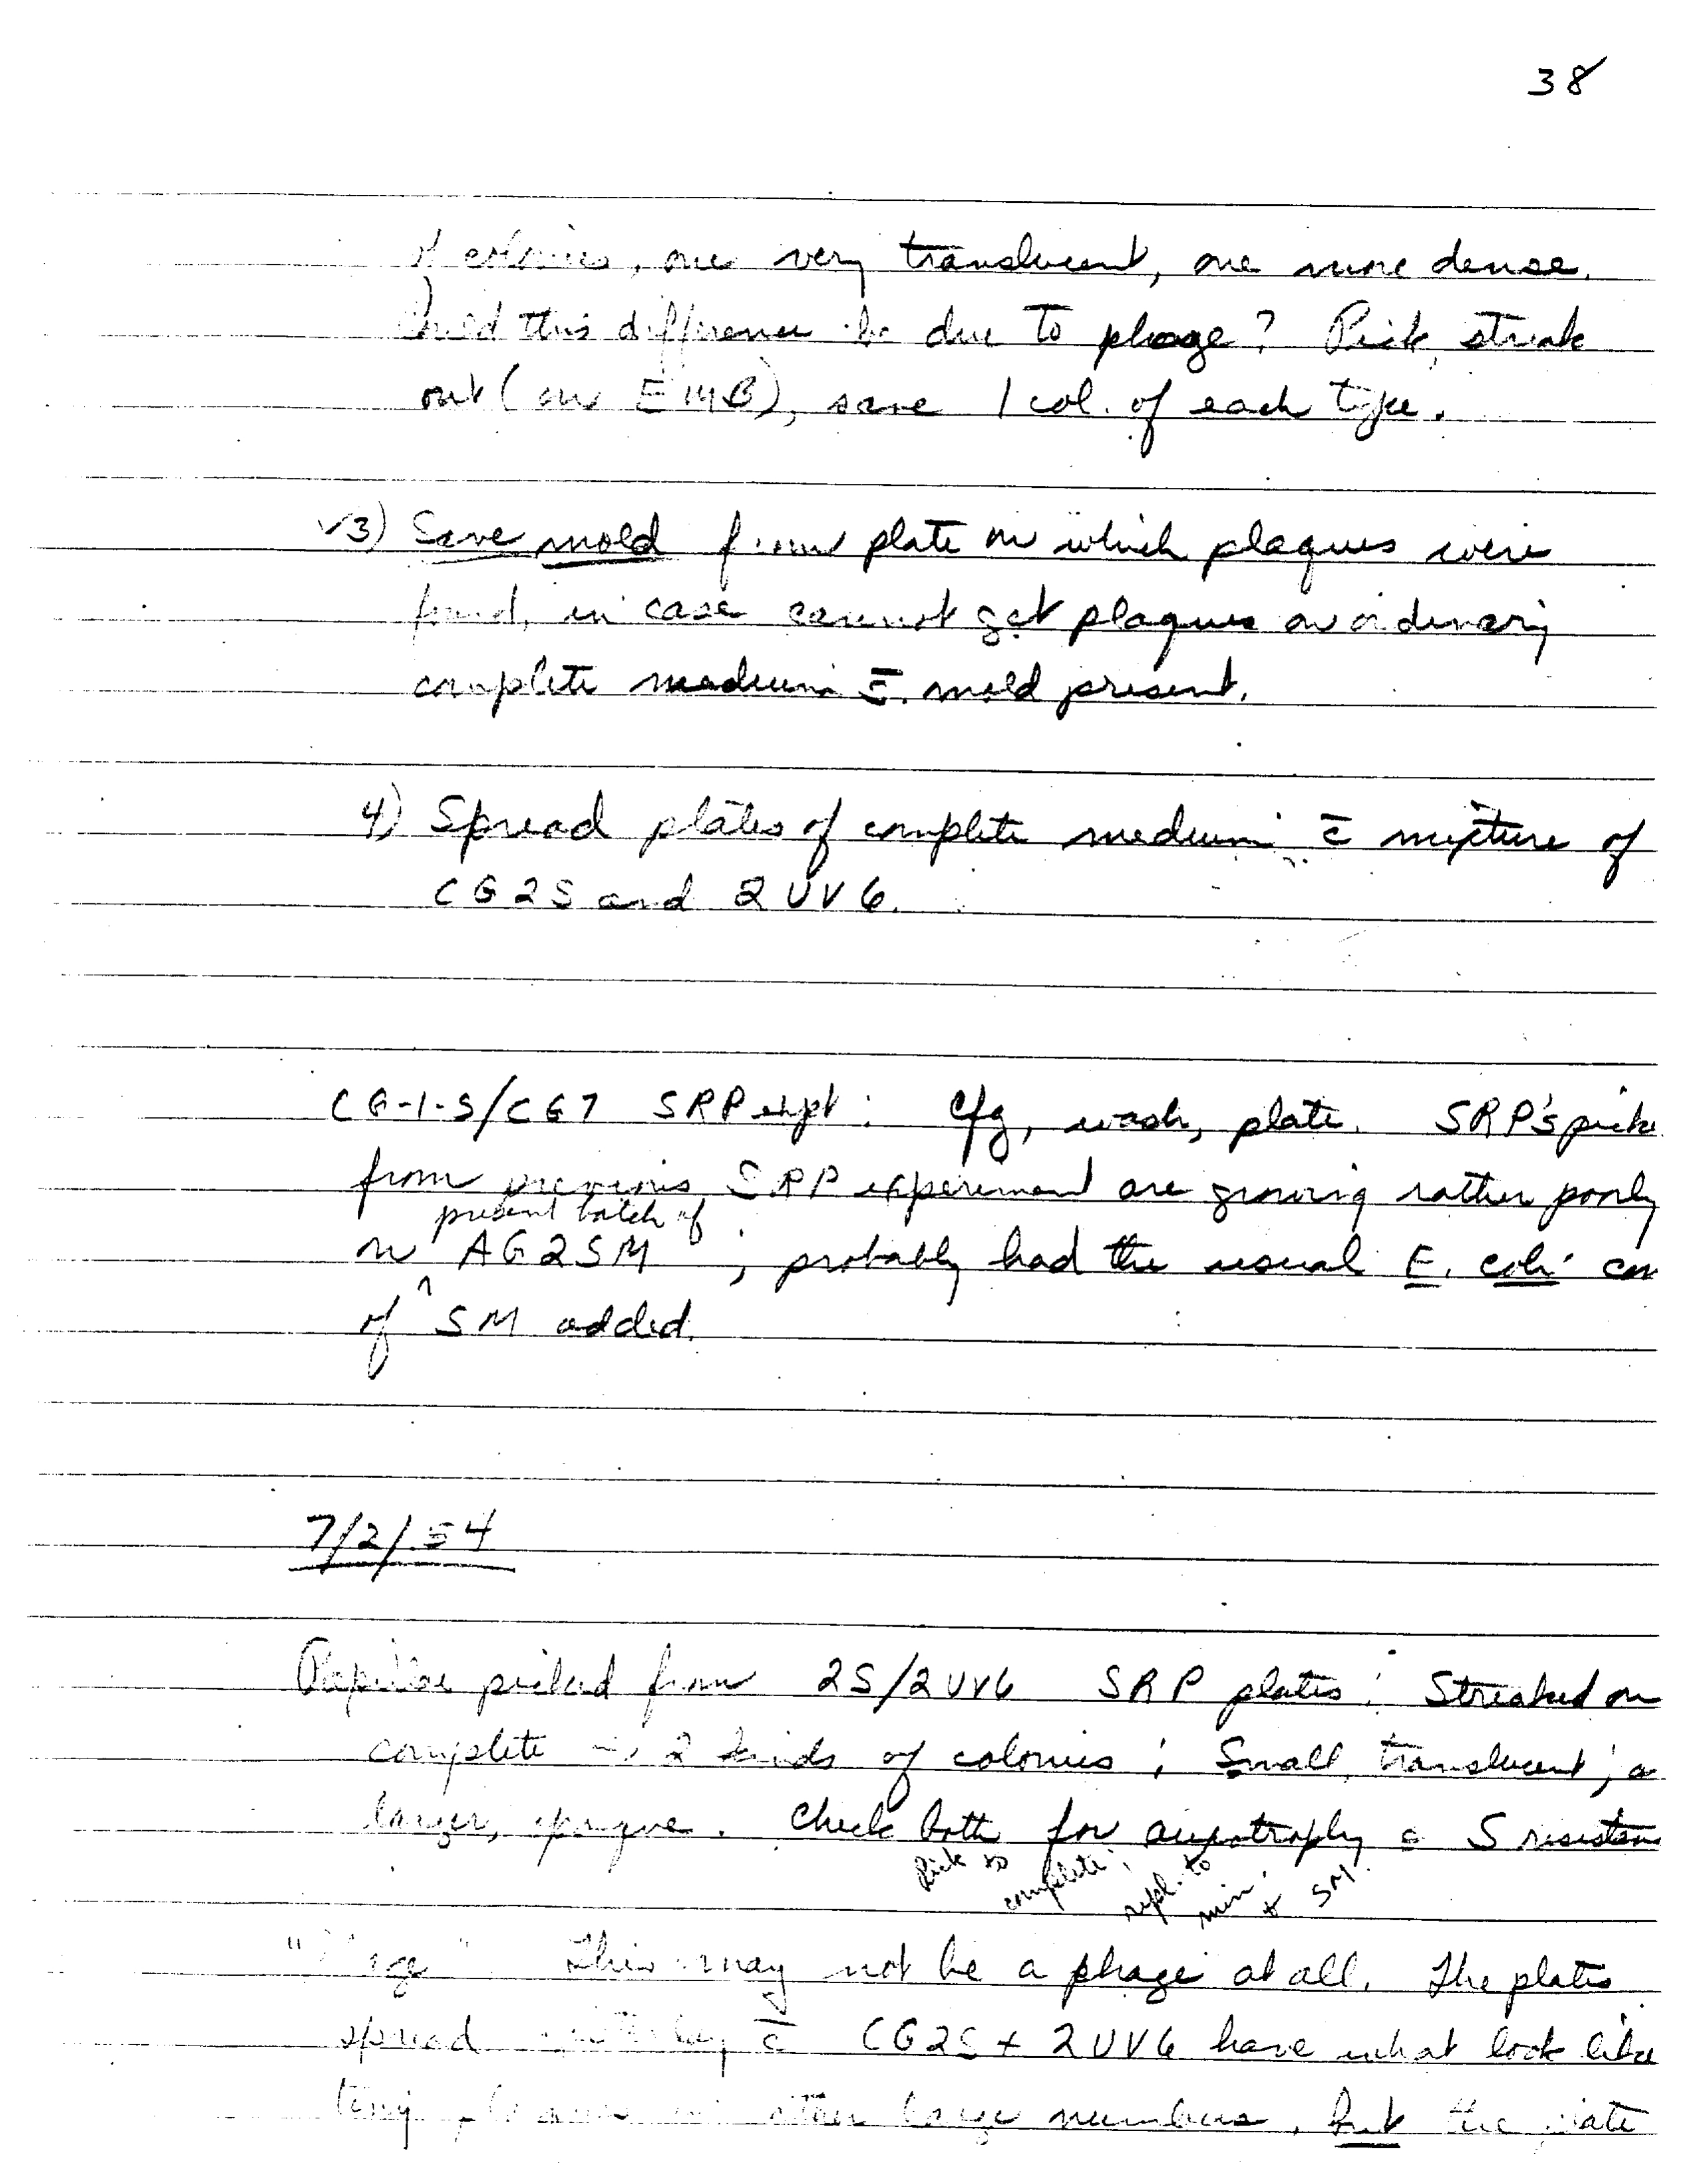 38
of colonies, one very translucent, one more dense.
Could this difference be due to phage? Pick, streak
out (on EMB), save 1 col. of each type.
✓3) Save mold from plate on which plaques were
found, in case cannot get plaques on ordinary
complete medium c̄ mold present.
4) Spread plates of complete medium c̄ mixture of
CG2S and 2UV6.
CG-1-S/CG7 SRP expt: Cfg, wash, plate. SRP's picke
from previous SRP experiment are growing rather poorly
present batch of
on ^ AG2SM ; probably had the usual E. coli con
of SM added.
7/2/54
Papillae picked from 2S/2UV6 SRP plates: Streaked on
complete → 2 kinds of colonies; Small, translucent; a
larger, opaque. Check both for auxotrophy & S resistan
Pick to complete; repl. to min. + SM.
"Phage" This may not be a phage at all. The plates
spread yesterday c̄ CG2S + 2UV6 have what look like
tiny plaques in rather large numbers, but the plate